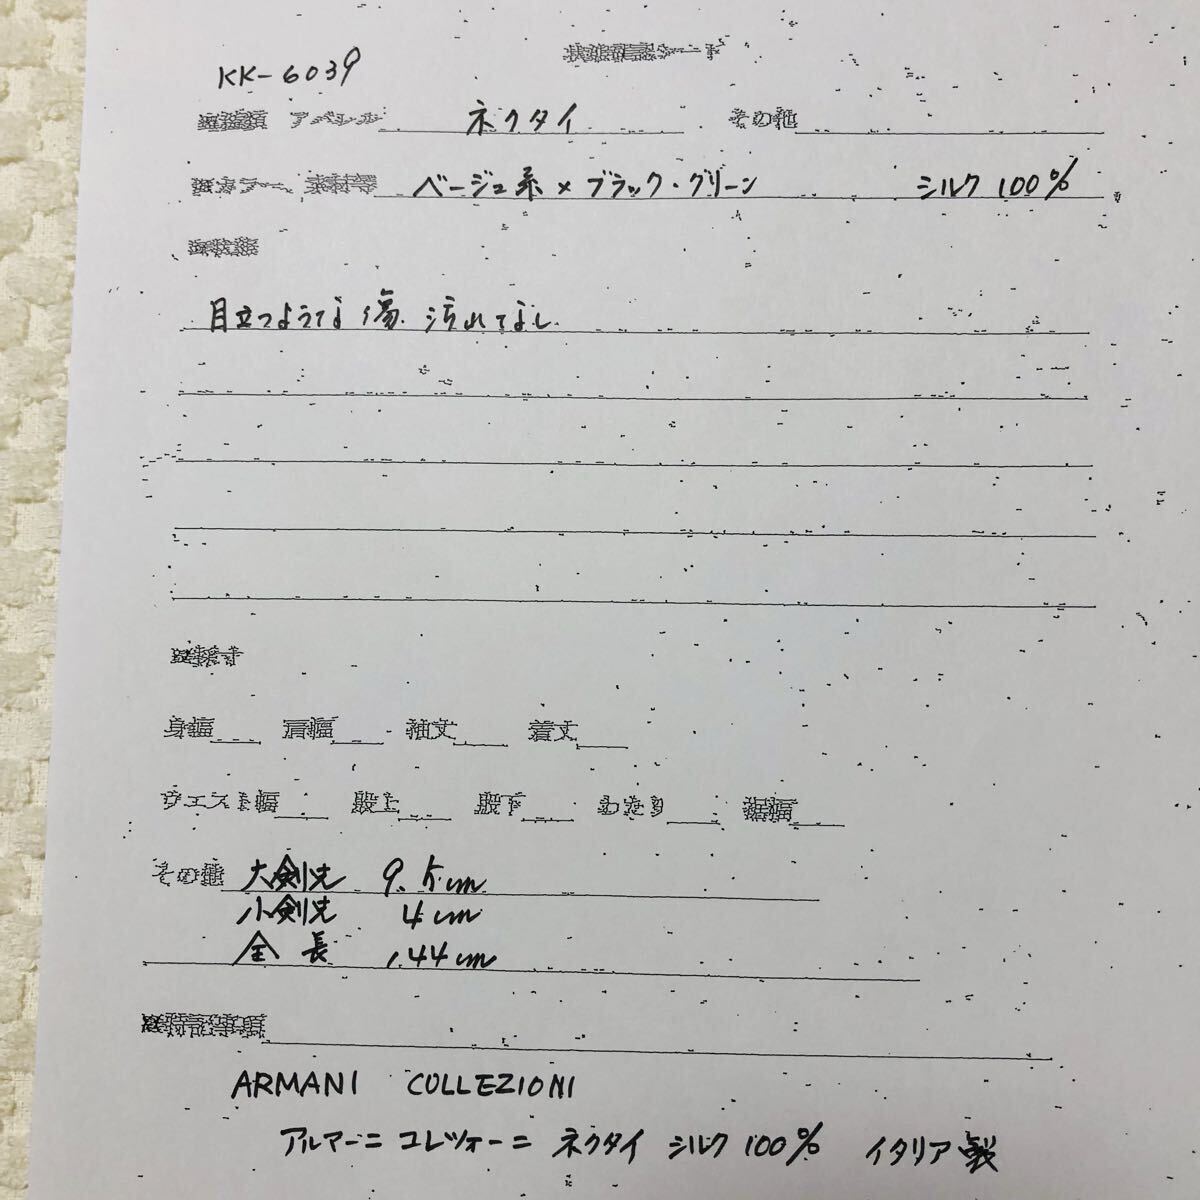 KK-6039
アパレル ネクタイ その他
カラー、素材等 ベージュ系×ブラック・グリーン シルク100%
目立つような傷.汚れてなし.
身幅 肩幅 袖丈 着丈
ウエスト幅 股上 股下 わたり 裾幅
その他 大剣先 9.5cm
小剣先 4cm
全長 144cm
特記事項
ARMANI COLLEZIONI
アルマーニ コレツォーニ ネクタイ シルク100% イタリア製